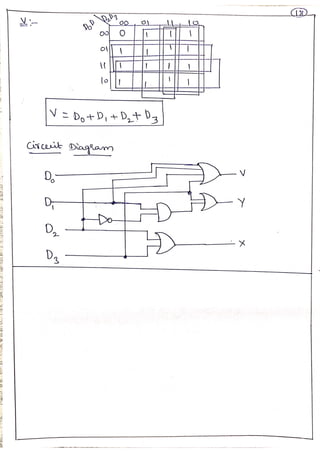 (13)
V:-
D₂D₃
00 01 11 10
00 0 1 1 1
01 1 1 1 1
11 1 1 1 1
10 1 1 1 1
V = D₀ + D₁ + D₂ + D₃
Circuit Diagram
D₀
V
D₁
Y
D₂
X
D₃